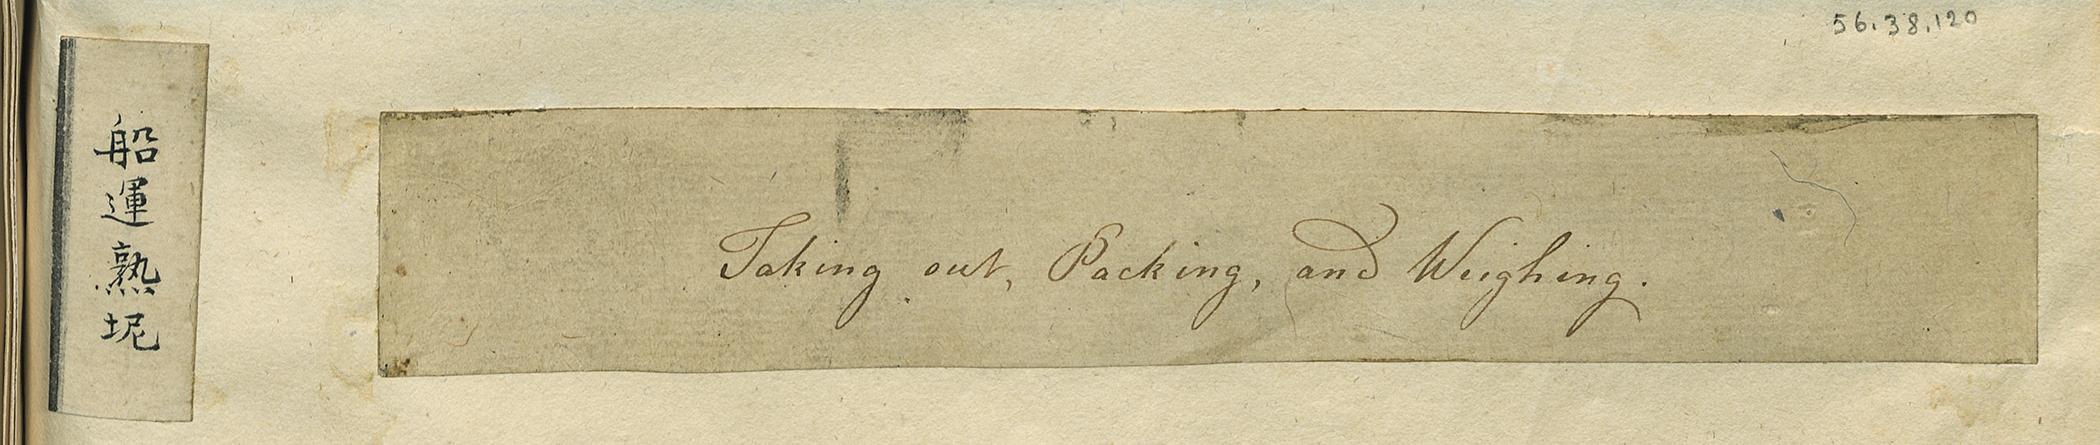 56.38.120
船運熟坭
Taking out, Packing, and Weighing.